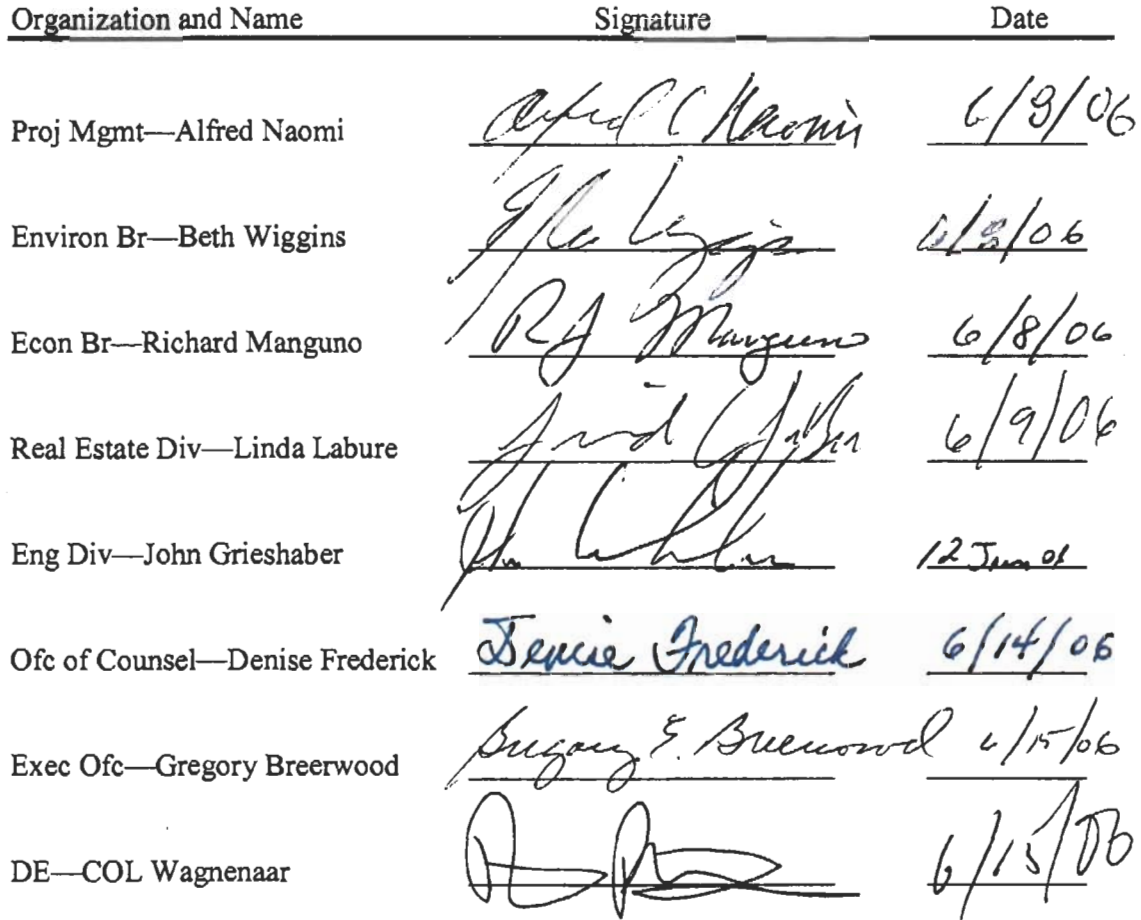 Organization and Name Signature Date
Proj Mgmt—Alfred Naomi Alfred C Naomi 6/9/06
Environ Br—Beth Wiggins 6/8/06
Econ Br—Richard Manguno RJ Manguno 6/8/06
Real Estate Div—Linda Labure 6/9/06
Eng Div—John Grieshaber 12 Jun 06
Ofc of Counsel—Denise Frederick Denise Frederick 6/14/06
Exec Ofc—Gregory Breerwood Gregory E. Breerwood 6/15/06
DE—COL Wagnenaar 6/15/06